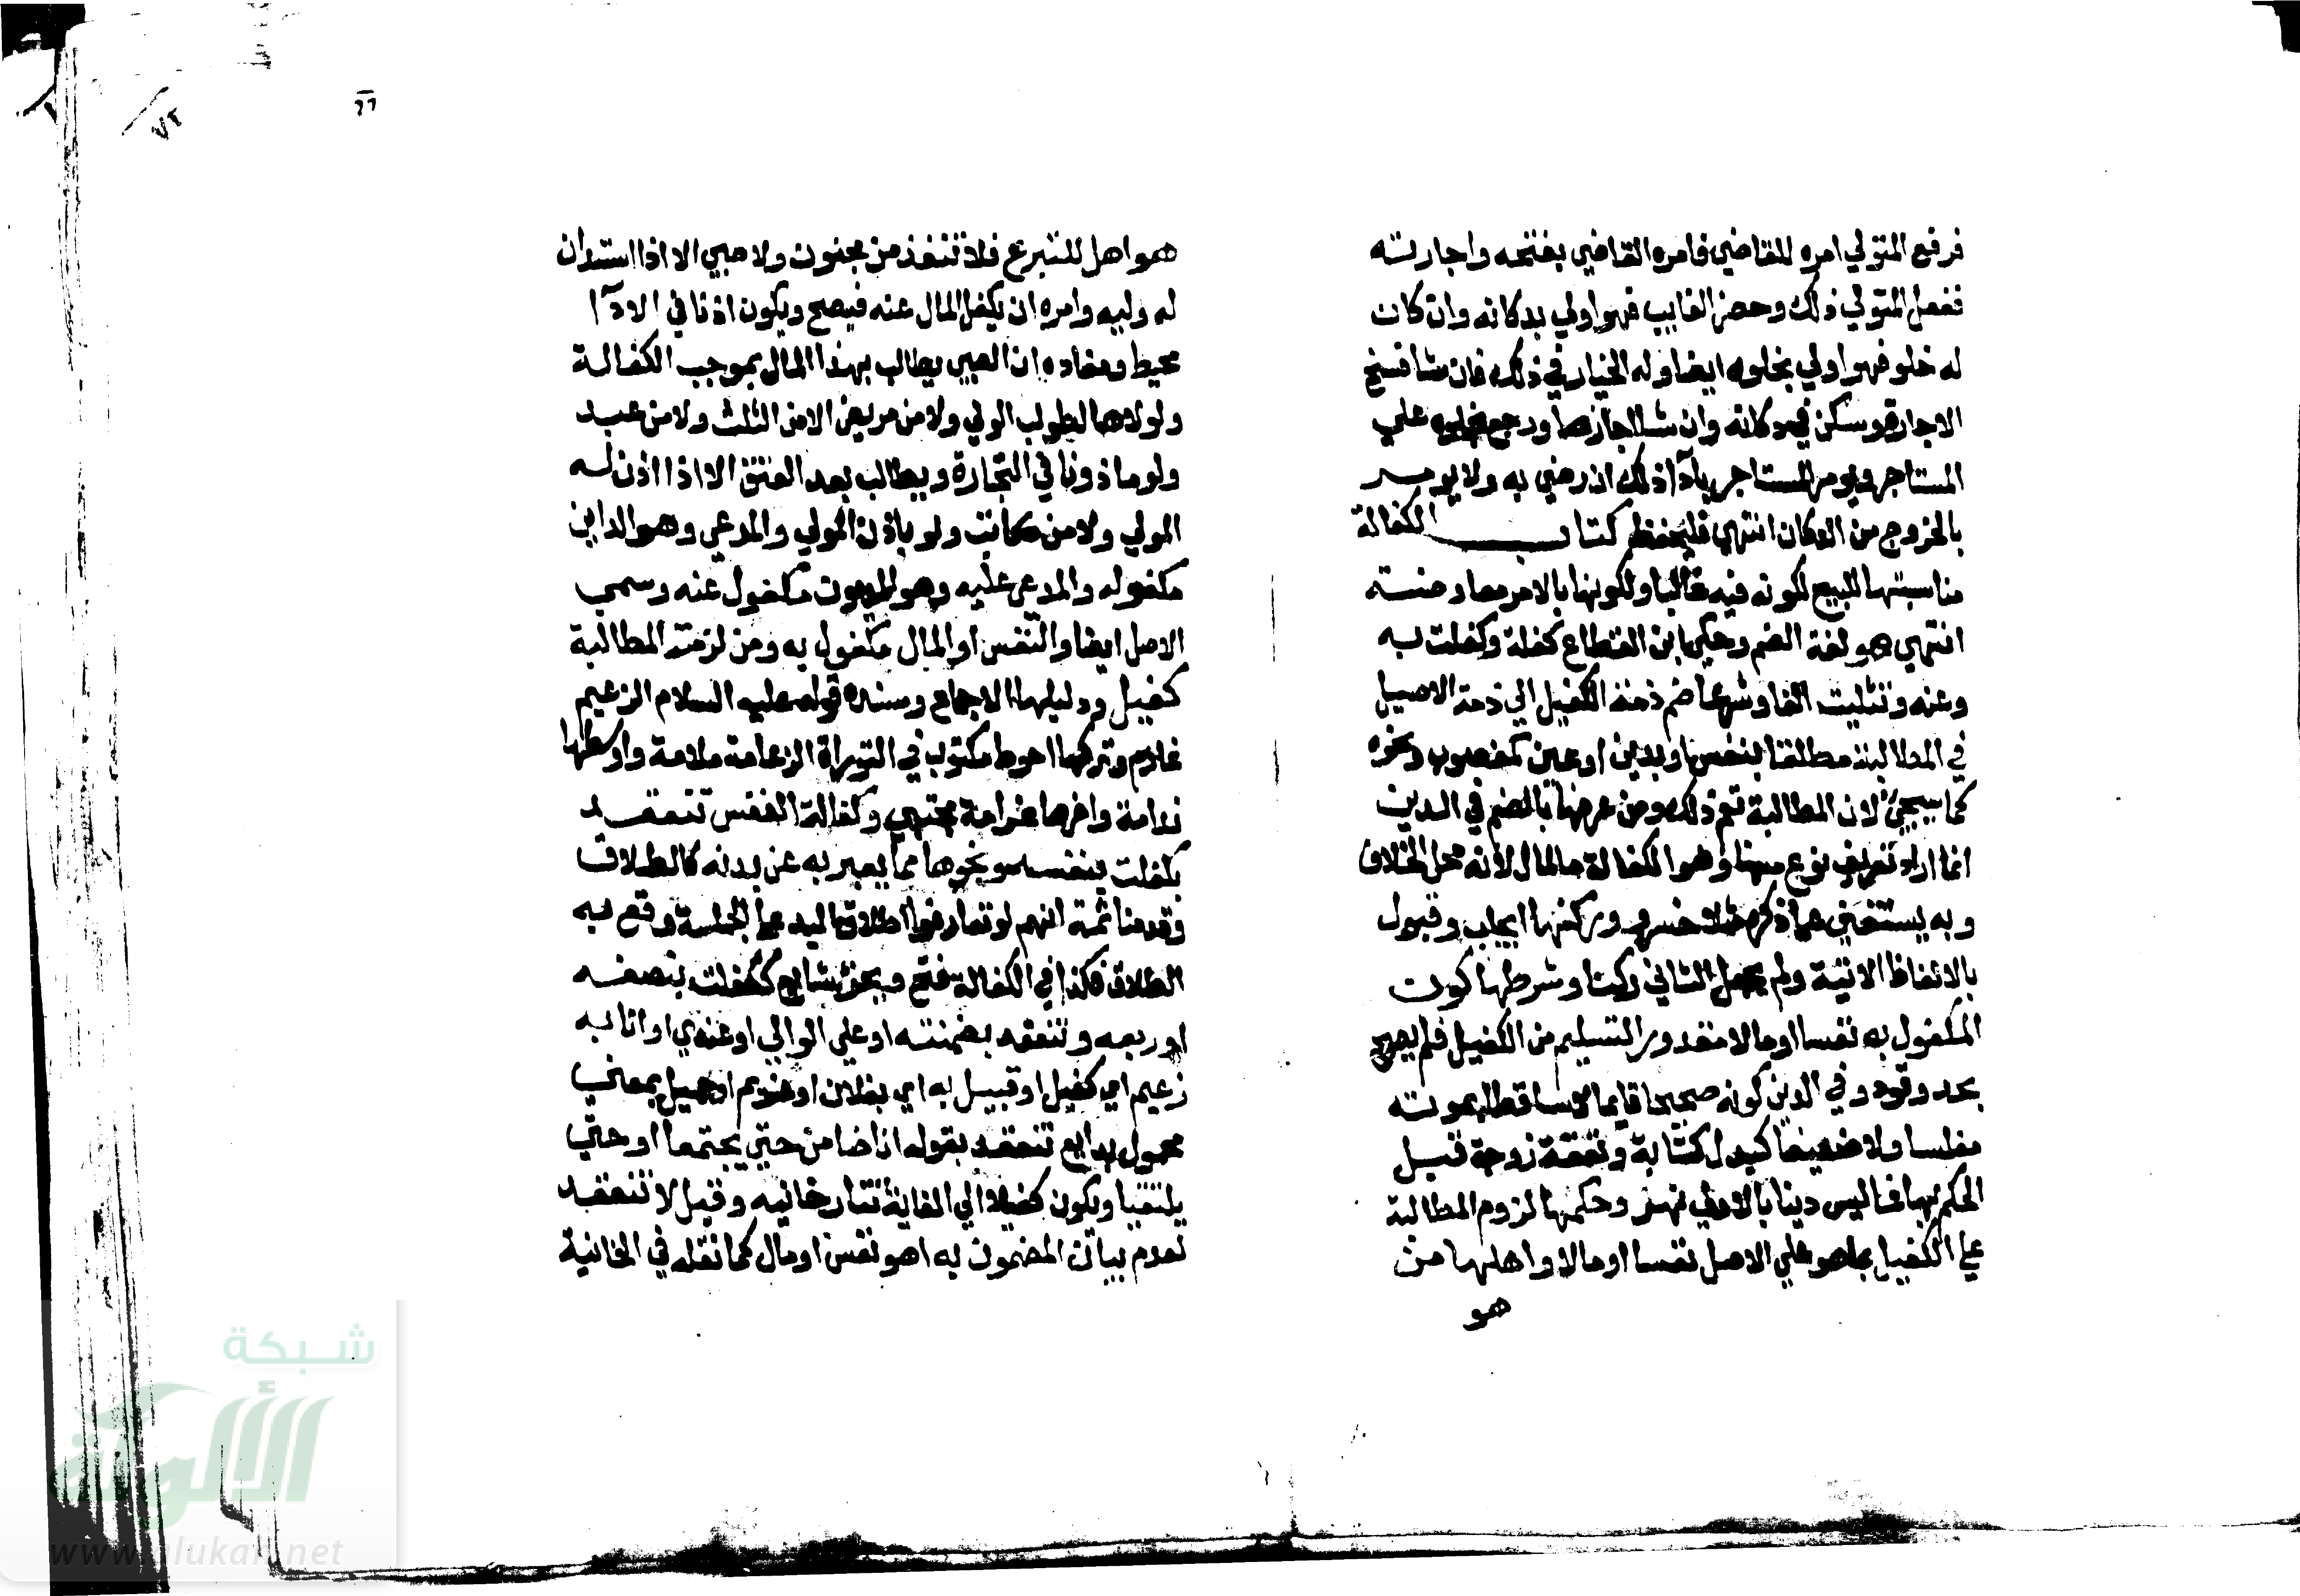 فرفع المتولي امره للقاضي فامره القاضي بفتحه واجارته
ففعل المتولي ذلك وحضر الغايب فهو اولي بدكانه وان كان
له خلو فهو اولي بخلوه ايضا وله الخيار في ذلك فان شا فسخ
الاجارة وسكن في دكانه وان شا اجازها ورجع بخلوه علي
المستاجر ويومر المستاجر باداء ذلك ان رضي به ولا يومر
بالخروج من الدكان انتهي فليحفظ كتاب الكفالة
مناسبتها للبيع لكونه فيه غالبا ولكونها بالامر معاوضة
انتهي هو لغة الضم وحكي ابن القطاع كفلة وكفلت به
وعنه وتثليث الفا وشرعا ضم ذمة الكفيل الي ذمة الاصيل
في المطالبة مطلقا بنفس او بدين او عين كمغصوب ونحوه
كما سيجيء لان المطالبة تعم ذلك ومن عرفها بالضم في الدين
انما اراد تعريف نوع منها وهو الكفالة بالمال لانه محل الخلاف
وبه يستغني عما ذكره منلا خسرو وركنها ايجاب وقبول
بالالفاظ الاتية ولم يجعل الثاني ركنا وشرطها كون
المكفول به نفسا او مالا مقدور التسليم من الكفيل فلم يصح
بحد وقود وفي الدين كونه صحيحا قايما لا ساقطا بموته
مفلسا ولا ضعيفا كبدل كتابة ونفقة زوجة قبل
الحكم بها فما ليس دينا بالاولي نهر وحكمها لزوم المطالبة
علي الكفيل بما هو علي الاصل نفسا او مالا واهلها من
هو
٦٦
٧٢
هو اهل للتبرع فلا تنفذ من مجنون ولا صبي الا اذا استدان
له وليه وامره ان يكفل المال عنه فيصح ويكون اذنا في الادآ
محيط ومفاده ان الصبي يطالب بهذا المال بموجب الكفالة
ولولاها لطولب الولي ولا من مريض الا من الثلث ولا من عبد
ولو ماذونا في التجارة ويطالب بعد العتق الا اذا اذن له
المولي ولا من مكاتب ولو باذن المولي والمدعي وهو الداين
مكفول له والمدعي عليه وهو المديون مكفول عنه وسمي
الاصل ايضا والنفس او المال مكفول به ومن لزمته المطالبة
كفيل ودليلها الاجماع وسنده قوله عليه السلام الزعيم
غارم وتركها احوط مكتوب في التوراة الزعامة ملامة واوسطها
ندامة واخرها غرامة مجتبي وكفالة النفس تنعقد
بكفلت بنفسه ونحوها مما يعبر به عن بدنه كالطلاق
وقدمنا ثمة انهم لو تعارفوا اطلاق اليد علي الجملة وقع به
الطلاق فكذا في الكفالة فتح وبجزء شايع ككفلت بنصفه
او ربعه وتنعقد بضمنته او علي او الي او عندي او انا به
زعيم اي كفيل او قبيل به اي بفلان او غريم او حميل بمعني
محمول بدايع تنعقد بقوله انا ضامن حتي يجتمعا او حتي
يلتقيا ويكون كفيلا الي الغاية تتارخانيه وقيل لا تنعقد
لعدم بيان المضمون به اهو نفس او مال كما نقله في الخانية
شبكة
الألوكة
www.alukah.net